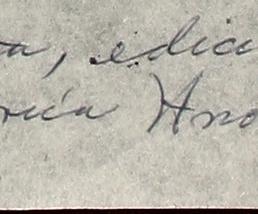 a, edici
ría Ana